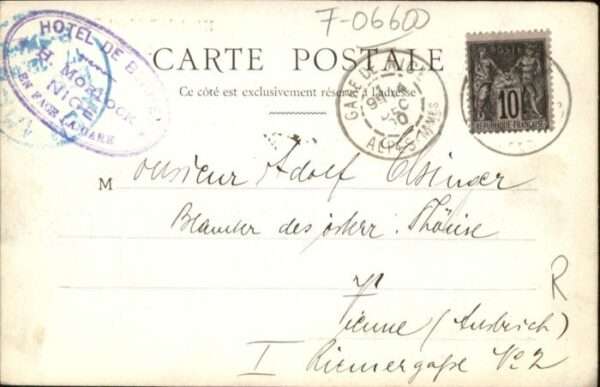 F-06600
HOTEL DE
MORLOCK
NICE
EN FACE LA GARE
CARTE POSTALE
Ce côté est exclusivement réservé à l'adresse
GARE DE
DEC
ALPES-MMES
POSTE
10
REPUBLIQUE FRANÇAISE
Monsieur Adolf
Beamter des österr.
R
Vienne (Autrich)
I Riemergaße No 2